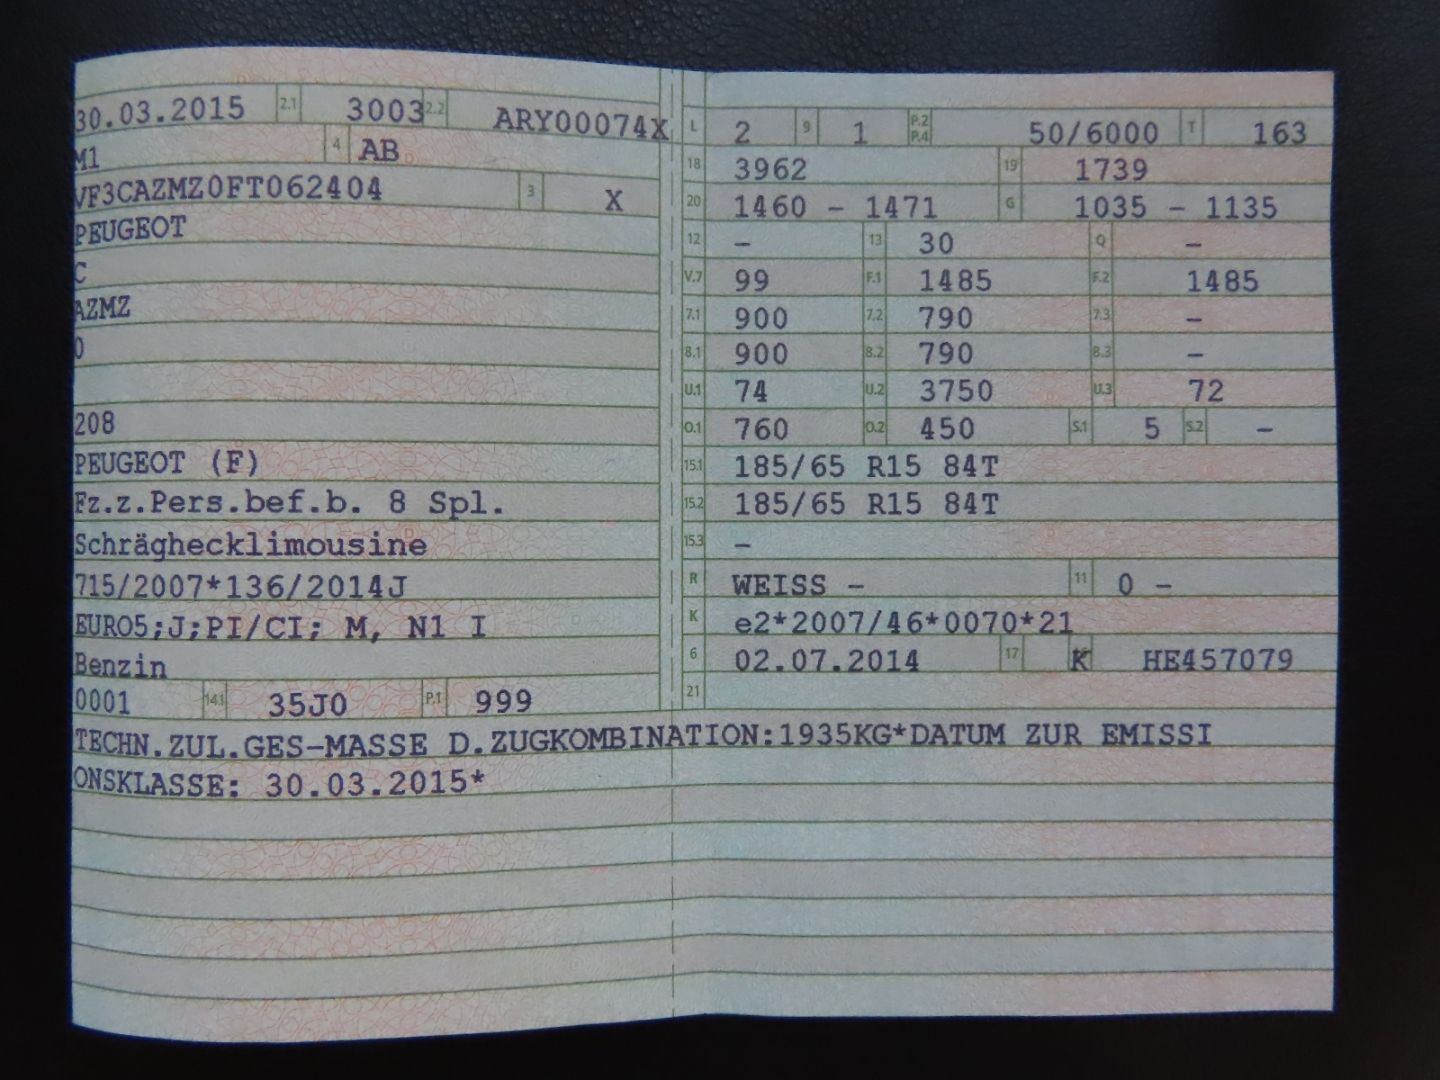 30.03.2015 2.1 3003 2.2 ARY00074X
M1 4 AB
VF3CAZMZ0FT062404 3 X
PEUGEOT
C
AZMZ
0
208
PEUGEOT (F)
Fz.z.Pers.bef.b. 8 Spl.
Schräghecklimousine
715/2007*136/2014J
EURO5;J;PI/CI; M, N1 I
Benzin
0001 14.1 35J0 P.1 999
L 2 9 1 P.2 P.4 50/6000 T 163
18 3962 19 1739
20 1460 - 1471 G 1035 - 1135
12 - 13 30 Q -
V.7 99 F.1 1485 F.2 1485
7.1 900 7.2 790 7.3 -
8.1 900 8.2 790 8.3 -
U.1 74 U.2 3750 U.3 72
O.1 760 O.2 450 S.1 5 S.2 -
15.1 185/65 R15 84T
15.2 185/65 R15 84T
15.3 -
R WEISS - 11 0 -
K e2*2007/46*0070*21
6 02.07.2014 17 K HE457079
21
TECHN.ZUL.GES-MASSE D.ZUGKOMBINATION:1935KG*DATUM ZUR EMISSI
ONSKLASSE: 30.03.2015*